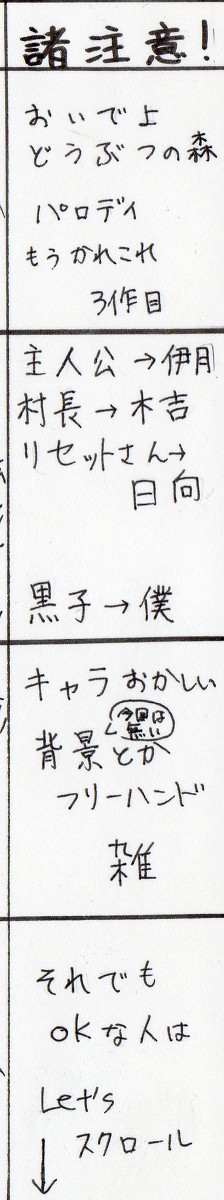 諸注意!
おいでよ
どうぶつの森
パロディ
もうかれこれ
3作目
主人公→伊月
村長→木吉
リセットさん→
日向
黒子→僕
キャラおかしい
今回は
無い
背景とか
フリーハンド
雑
それでも
OKな人は
Let's
スクロール